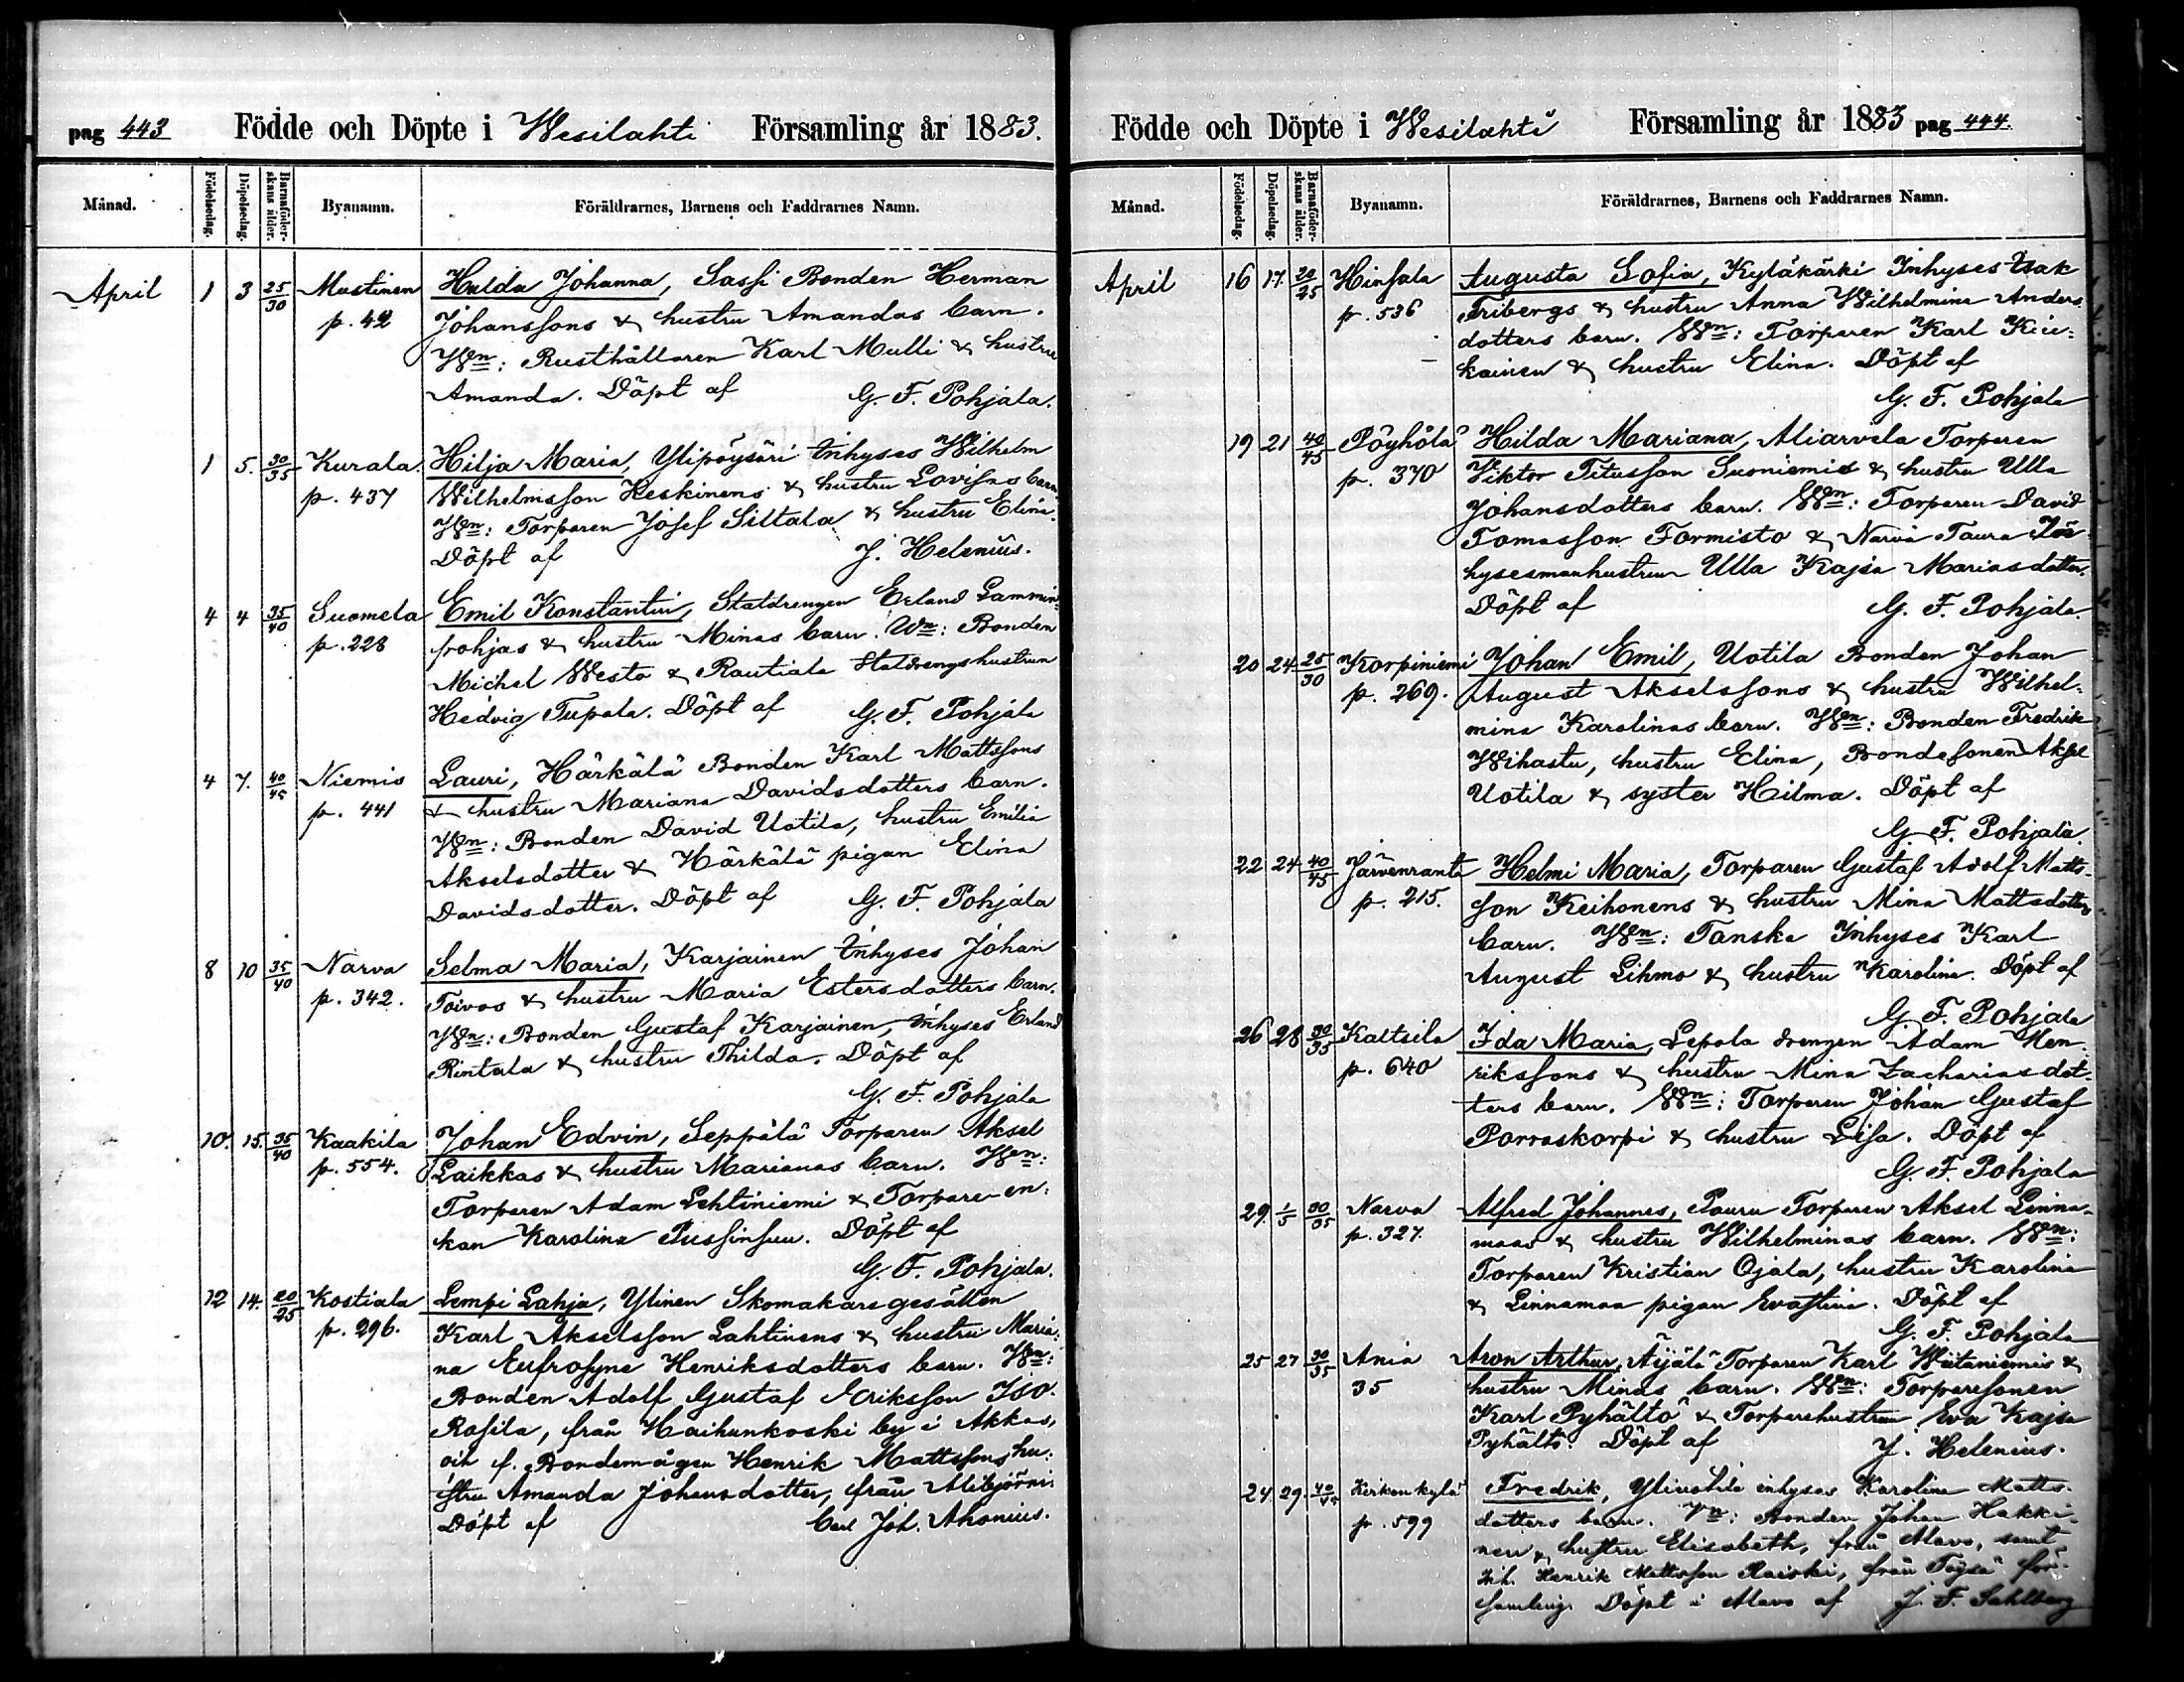 pag 443 Födde och Döpte i Wesilahti Församling år 1883.
Månad. Födelsedag. Döpelsedag. Barnaföderskans ålder. Byanamn. Föräldrarnes, Barnens och Faddrarnes Namn.
April 1 3 25/30 Mustinen Hulda Johanna, Sassi Bonden Herman
p. 42 Johanssons & hustru Amandas barn.
Wn: Rusthållaren Karl Mulli & hustru
Amanda. Döpt af G. F. Pohjala.
1 5. 30/35 Kurala. Hilja Maria, Ylipöysäri Inhyses Wilhelm
p. 437 Wilhelmsson Keskinens & hustru Lovisas barn.
Wn: Torparen Josef Siltala & hustru Elina.
Döpt af J. Helenius.
4 4 35/40 Suomela Emil Konstantin, Statdrengen Erland Lammin-
p. 228 pohjas & hustru Minas barn. Wn: Bonden
Michel Westo & Rautiala Statdrengshustrun
Hedvig Tupala. Döpt af G. F. Pohjala
4 7. 40/45 Niemis Lauri, Härkälä Bonden Karl Mattssons
p. 441 & hustru Mariana Davidsdotters barn.
Wn: Bonden David Uotila, hustru Emilia
Akselsdotter & Härkälä pigan Elina
Davidsdotter. Döpt af G. F. Pohjala
8 10 35/40 Narva Selma Maria, Karjainen Inhyses Johan
p. 342. Toivos & hustru Maria Estersdotters barn.
Wn: Bonden Gustaf Karjainen, Inhyses Erland
Rintala & hustru Thilda. Döpt af
G. F. Pohjala
10. 15. 35/40 Kaakila Johan Edvin, Seppälä Torparen Aksel
p. 554. Laikkas & hustru Marianas barn. Wn:
Torparen Adam Lehtiniemi & Torpare-en-
kan Karolina Döpt af
G. F. Pohjala.
12 14. 20/25 Kostiala Lempi Lahja, Ylinen Skomakaregesällen
p. 296. Karl Akselsson Lahtinens & hustru Maria-
na Eufrosyne Henriksdotters barn. Wn:
Bonden Adolf Gustaf Eriksson Iso-
Rasila, från Haihunkoski by i Akkas,
och f. Bondemågen Henrik Mattssons hu-
stru Amanda Johansdotter, från Alibjörni
Döpt af Carl Joh. Ahonius.
Födde och Döpte i Wesilahti Församling år 1883 pag 444.
Månad. Födelsedag. Döpelsedag. Barnaföderskans ålder. Byanamn. Föräldrarnes, Barnens och Faddrarnes Namn.
April 16 17. 20/25 Hinsala Augusta Sofia, Kyläkärki Inhyses Isak
p. 536 Fribergs & hustru Anna Wilhelmina Anders-
dotters barn. Wn: Torparen Karl
kainen & hustru Elina. Döpt af
G. F. Pohjala
19 21 40/45 Pöyhölä Hilda Mariana, Aliarvela Torparen
p. 370 Viktor Titusson Suoniemis & hustru Ulla
Johansdotters barn. Wn: Torparen David
Tomasson Tormisto & Narva Taura In-
hysesmanhustrun Ulla Kajsa Mariasdotter.
Döpt af G. F. Pohjala.
20 24 25/30 Korpiniemi Johan Emil, Uotila Bonden Johan
p. 269. August Akselssons & hustru Wilhel-
mina Karolinas barn. Wn: Bonden Fredrik
Wihastu, hustru Elina, Bondesonen Aksel
Uotila & syster Hilma. Döpt af
G. F. Pohjala.
22 24 40/45 Järvenranta Helmi Maria, Torparen Gustaf Adolf Matts-
p. 215. son Keihonens & hustru Mina Mattsdotters
barn. Wn: Tanska Inhyses Karl
August Lihmo & hustru Karolina. Döpt af
G. F. Pohjala
26 28 30/35 Kaltsila Ida Maria, Lepola drengen Adam Hen-
p. 640 rikssons & hustru Mina Zachariasdot-
ters barn. Wn: Torparen Johan Gustaf
Porraskorpi & hustru Lisa. Döpt af
G. F. Pohjala
29. 1/5 30/35 Narva Alfred Johannes, Pauru Torparen Aksel Linna-
p. 327. maas & hustru Wilhelminas barn. Wn:
Torparen Kristian Ojala, hustru Karolina
& Linnamaa pigan Evastina. Döpt af
G. F. Pohjala
25 27 30/35 Ania Aron Arthur, Äijälä Torparen Karl Wiitaniemis &
35 hustru Minas barn. Wn: Torparesonen
Karl Pyhältö & Torparehustrun Eva Kajsa
Pyhältö. Döpt af J. Helenius.
24. 29. Kirkonkylä Fredrik, Yliuotila inhyses Karolina Matts-
p. 599 dotters barn. Vn: Bonden Johan Hakki-
nen & hustru Elisabeth, från Alavo, samt
Inh. Henrik Mattsson Raiski, från Töysä för-
samling. Döpt i Alavo af J. F. Sahlberg